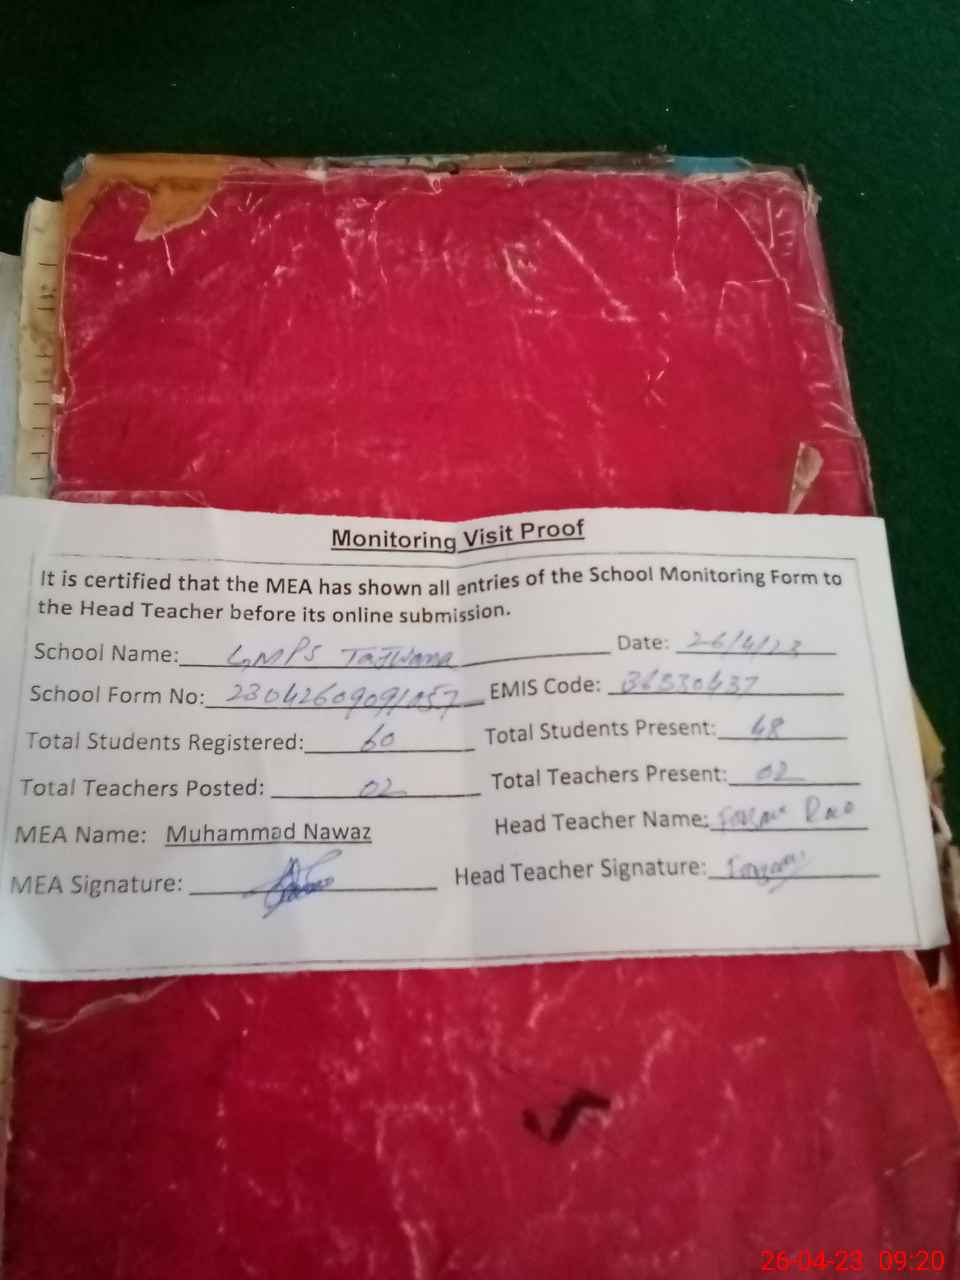 Monitoring Visit Proof
It is certified that the MEA has shown all entries of the School Monitoring Form to
the Head Teacher before its online submission.
School Name: GMPS Tajwana Date: 26/4/23
School Form No: 23042609091057 EMIS Code: 36330437
Total Students Registered: 60 Total Students Present: 48
Total Teachers Posted: 02 Total Teachers Present: 02
MEA Name: Muhammad Nawaz Head Teacher Name:
MEA Signature: Head Teacher Signature:
26-04-23 09:20